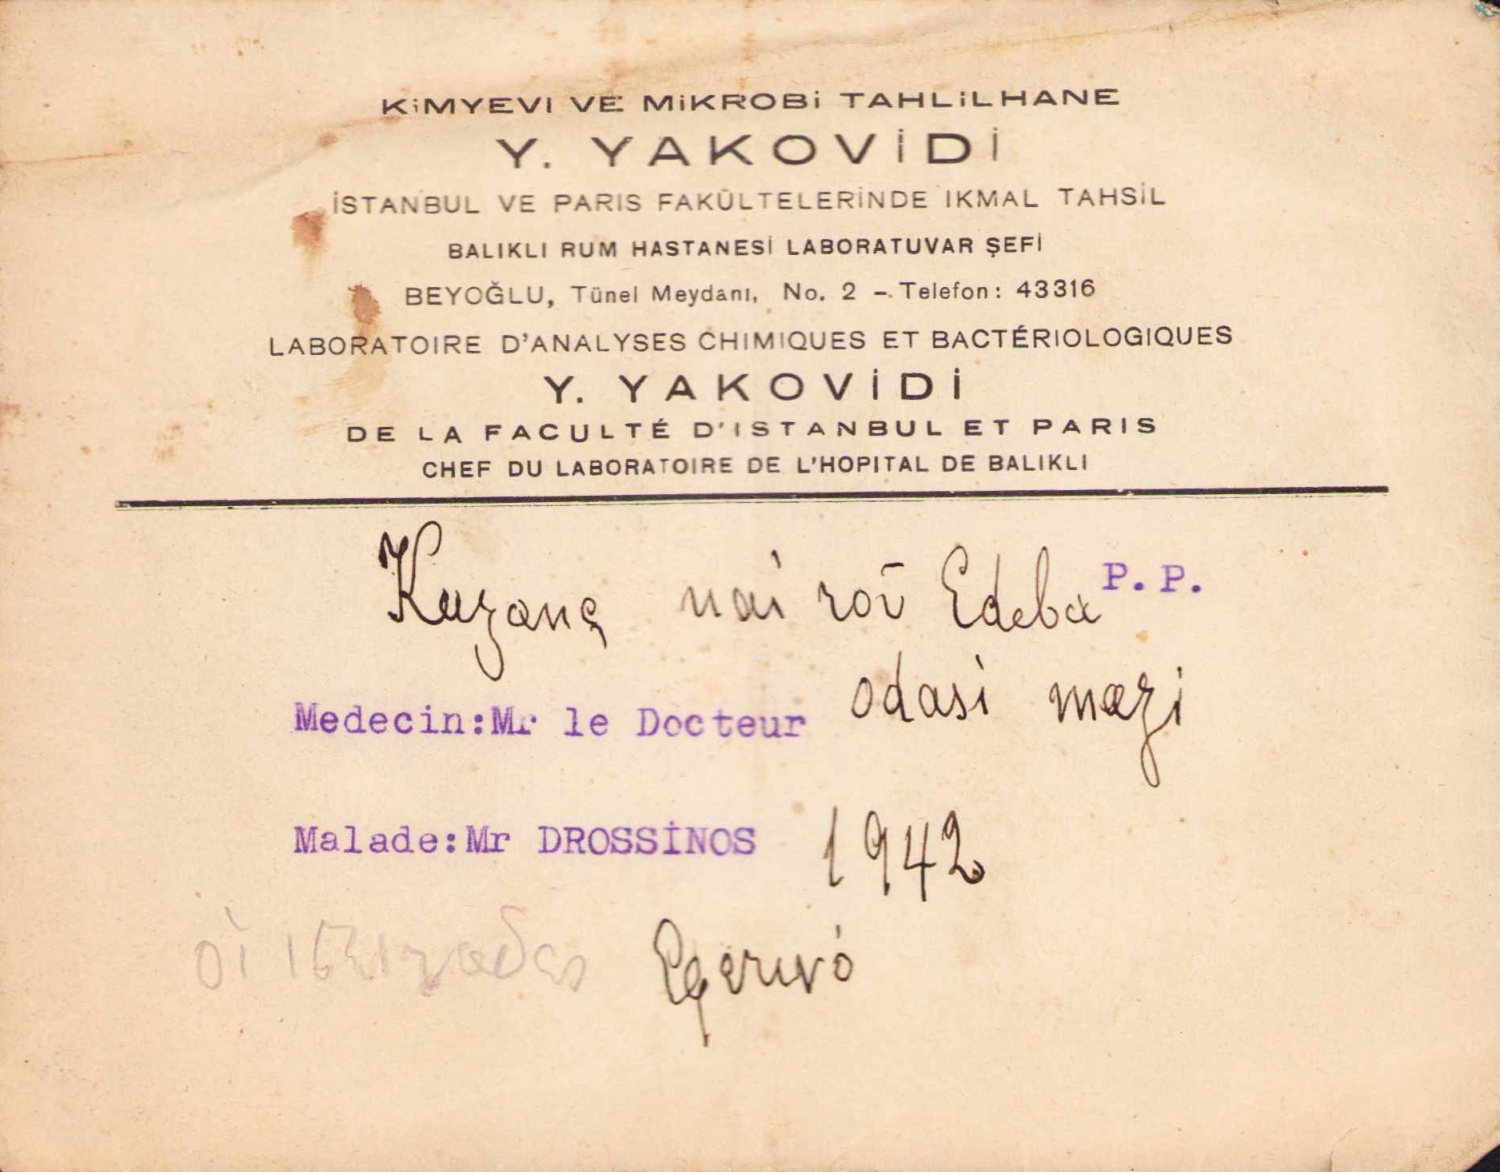 KiMYEVI VE MiKROBi TAHLiLHANE
Y. YAKOViDi
İSTANBUL VE PARIS FAKÜLTELERiNDE IKMAL TAHSiL
BALIKLI RUM HASTANESi LABORATUVAR ŞEFi
BEYOĞLU, Tünel Meydanı, No. 2 – Telefon: 43316
LABORATOIRE D'ANALYSES CHIMIQUES ET BACTÉRIOLOGIQUES
Y. YAKOViDi
DE LA FACULTÉ D'ISTANBUL ET PARIS
CHEF DU LABORATOIRE DE L'HOPITAL DE BALIKLI
P.P.
Kazanç καὶ τοῦ Edeba
odasi mazi
Medecin:Mr le Docteur
Malade:Mr DROSSİNOS 1942
οἱ